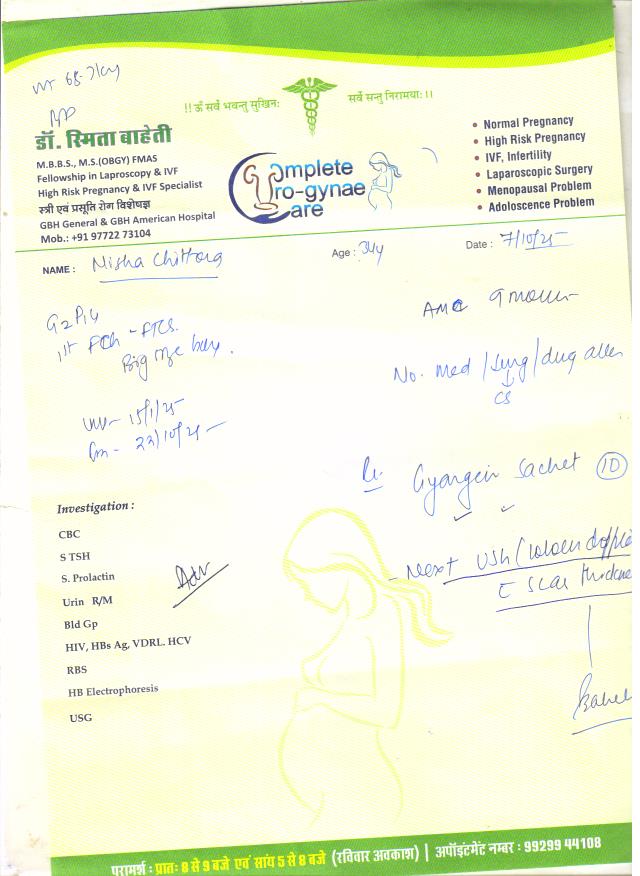 wt 68.7 kg
BP
!! ॐ सर्वे भवन्तु सुखिनः
सर्वे सन्तु निरामयाः !!
डॉ. स्मिता बाहेती
M.B.B.S., M.S.(OBGY) FMAS
Fellowship in Laproscopy & IVF
High Risk Pregnancy & IVF Specialist
स्त्री एवं प्रसूति रोग विशेषज्ञ
GBH General & GBH American Hospital
Mob.: +91 97722 73104
Complete
Uro-gynae
Care
• Normal Pregnancy
• High Risk Pregnancy
• IVF, Infertility
• Laparoscopic Surgery
• Menopausal Problem
• Adoloscence Problem
NAME : Nisha Chittora
Age : 34y
Date : 7/10/25
G2P1L1
AMC 9 month
1st FCh - FTCS.
Big size baby.
No. Med / Surg / drug aller
CS
15/1/25
22/10/25
Rx
Gyargein Sachet (10)
- Next USG (colour dopple
c scar thickne
Investigation :
CBC
S TSH
S. Prolactin
Adv
Urin R/M
Bld Gp
HIV, HBs Ag, VDRL. HCV
RBS
HB Electrophoresis
USG
परामर्श : प्रातः 8 से 9 बजे एवं सांय 5 से 8 बजे (रविवार अवकाश) | अपॉइंटमेंट नम्बर : 99299 44108